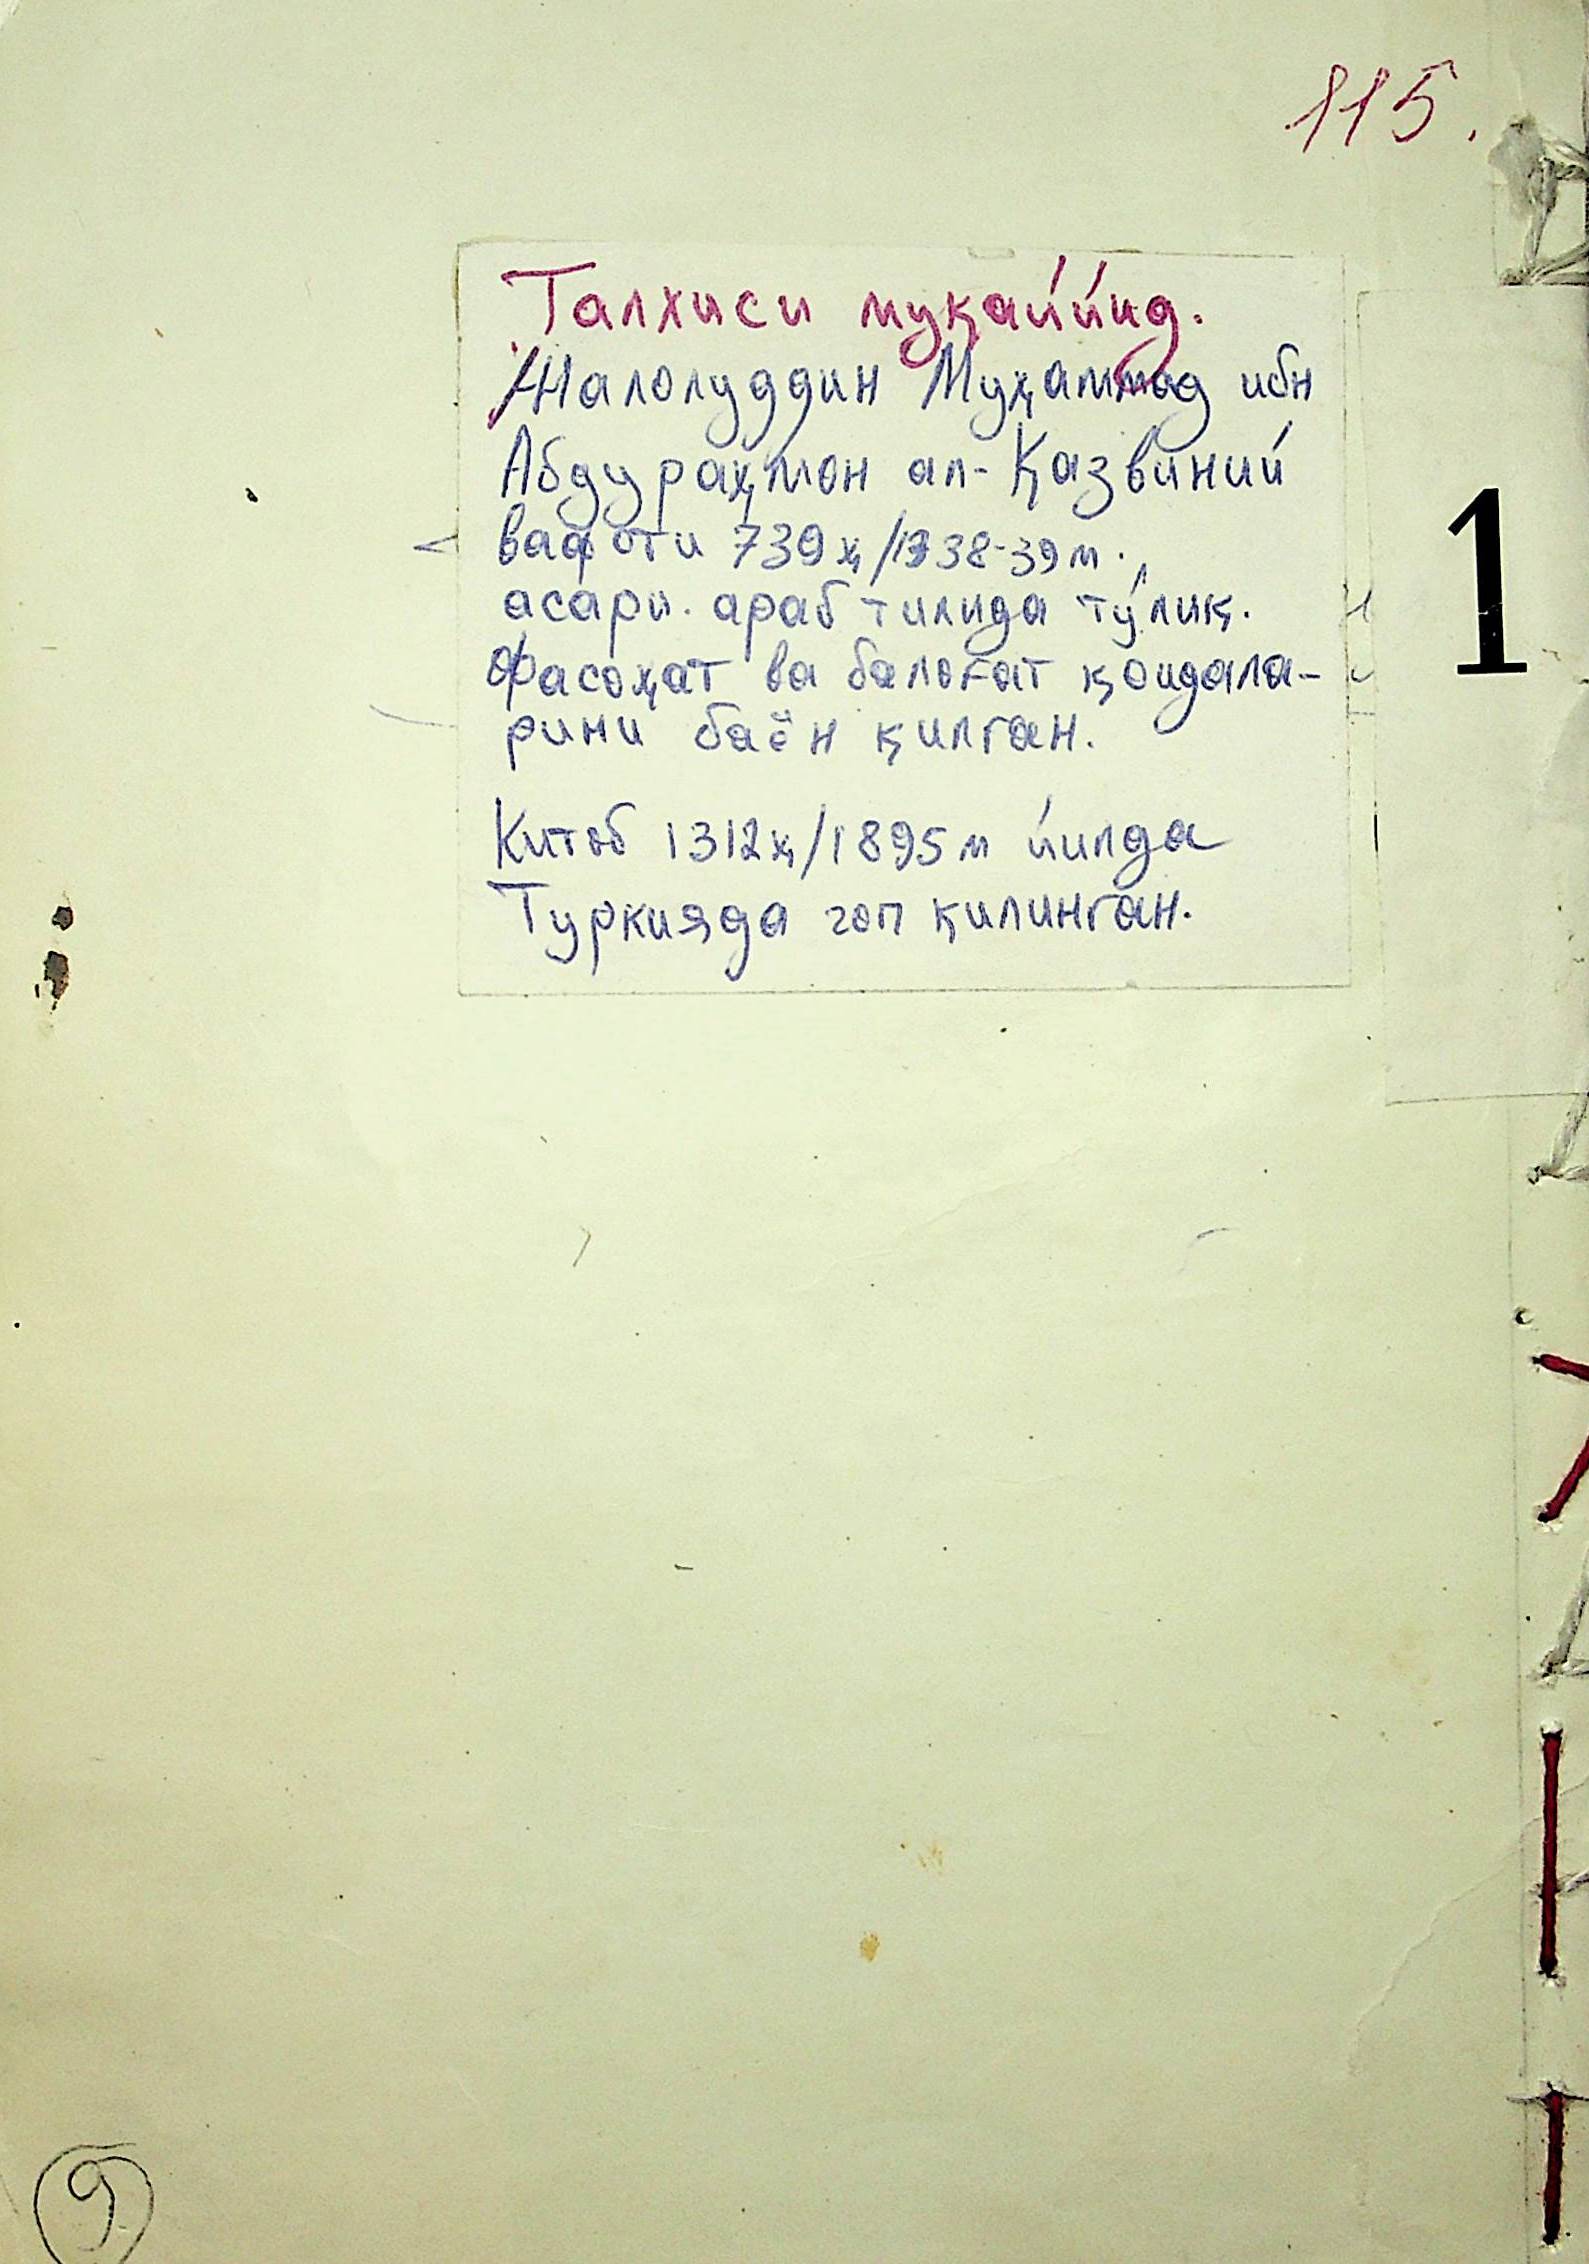 115.
Талхиси муқаййид.
Жалолуддин Муҳаммад ибн
Абдураҳмон ал-Қазвиний
вафоти 739ҳ/1338-39м.,
асари. араб тилида тўлиқ.
Фасоҳат ва балоғат қоидала-
рини баён қилган.
Китоб 1312ҳ/1895м йилда
Туркияда чоп қилинган.
1
9